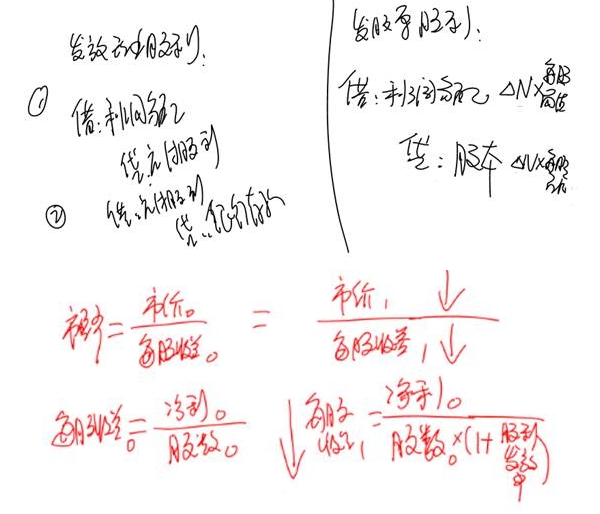 发放现金股利:
① 借:利润分配
贷:应付股利
② 借:应付股利
贷:银行存款
发放股票股利:
借:利润分配 ΔN×每股面值
贷:股本 ΔN×每股面值
市盈率 = 市价₀ / 每股收益₀ = 市价₁ ↓ / 每股收益₁ ↓
每股收益₀ = 净利₀ / 股数₀ ↓ 每股收益₁ = 净利₀ / 股数₀×(1+股利发放率)